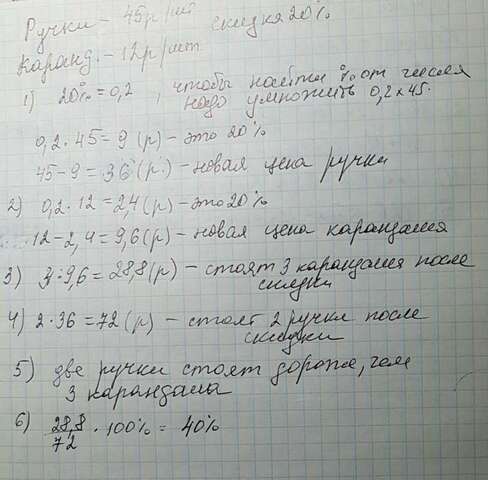 Ручки - 45р/шт скидка 20%
Каранд. - 12р/шт
1) 20% = 0,2 , чтобы найти % от числа
надо умножить 0,2 х 45.
0,2 · 45 = 9 (р) - это 20%
45 - 9 = 36 (р.) - новая цена ручки
2) 0,2 · 12 = 2,4 (р) - это 20%
12 - 2,4 = 9,6 (р) - новая цена карандаша
3) 3 · 9,6 = 28,8 (р) - стоят 3 карандаша после
скидки
4) 2 · 36 = 72 (р) - стоят 2 ручки после
скидки
5) две ручки стоят дороже, чем
3 карандаша
6) 28,8/72 · 100% = 40%